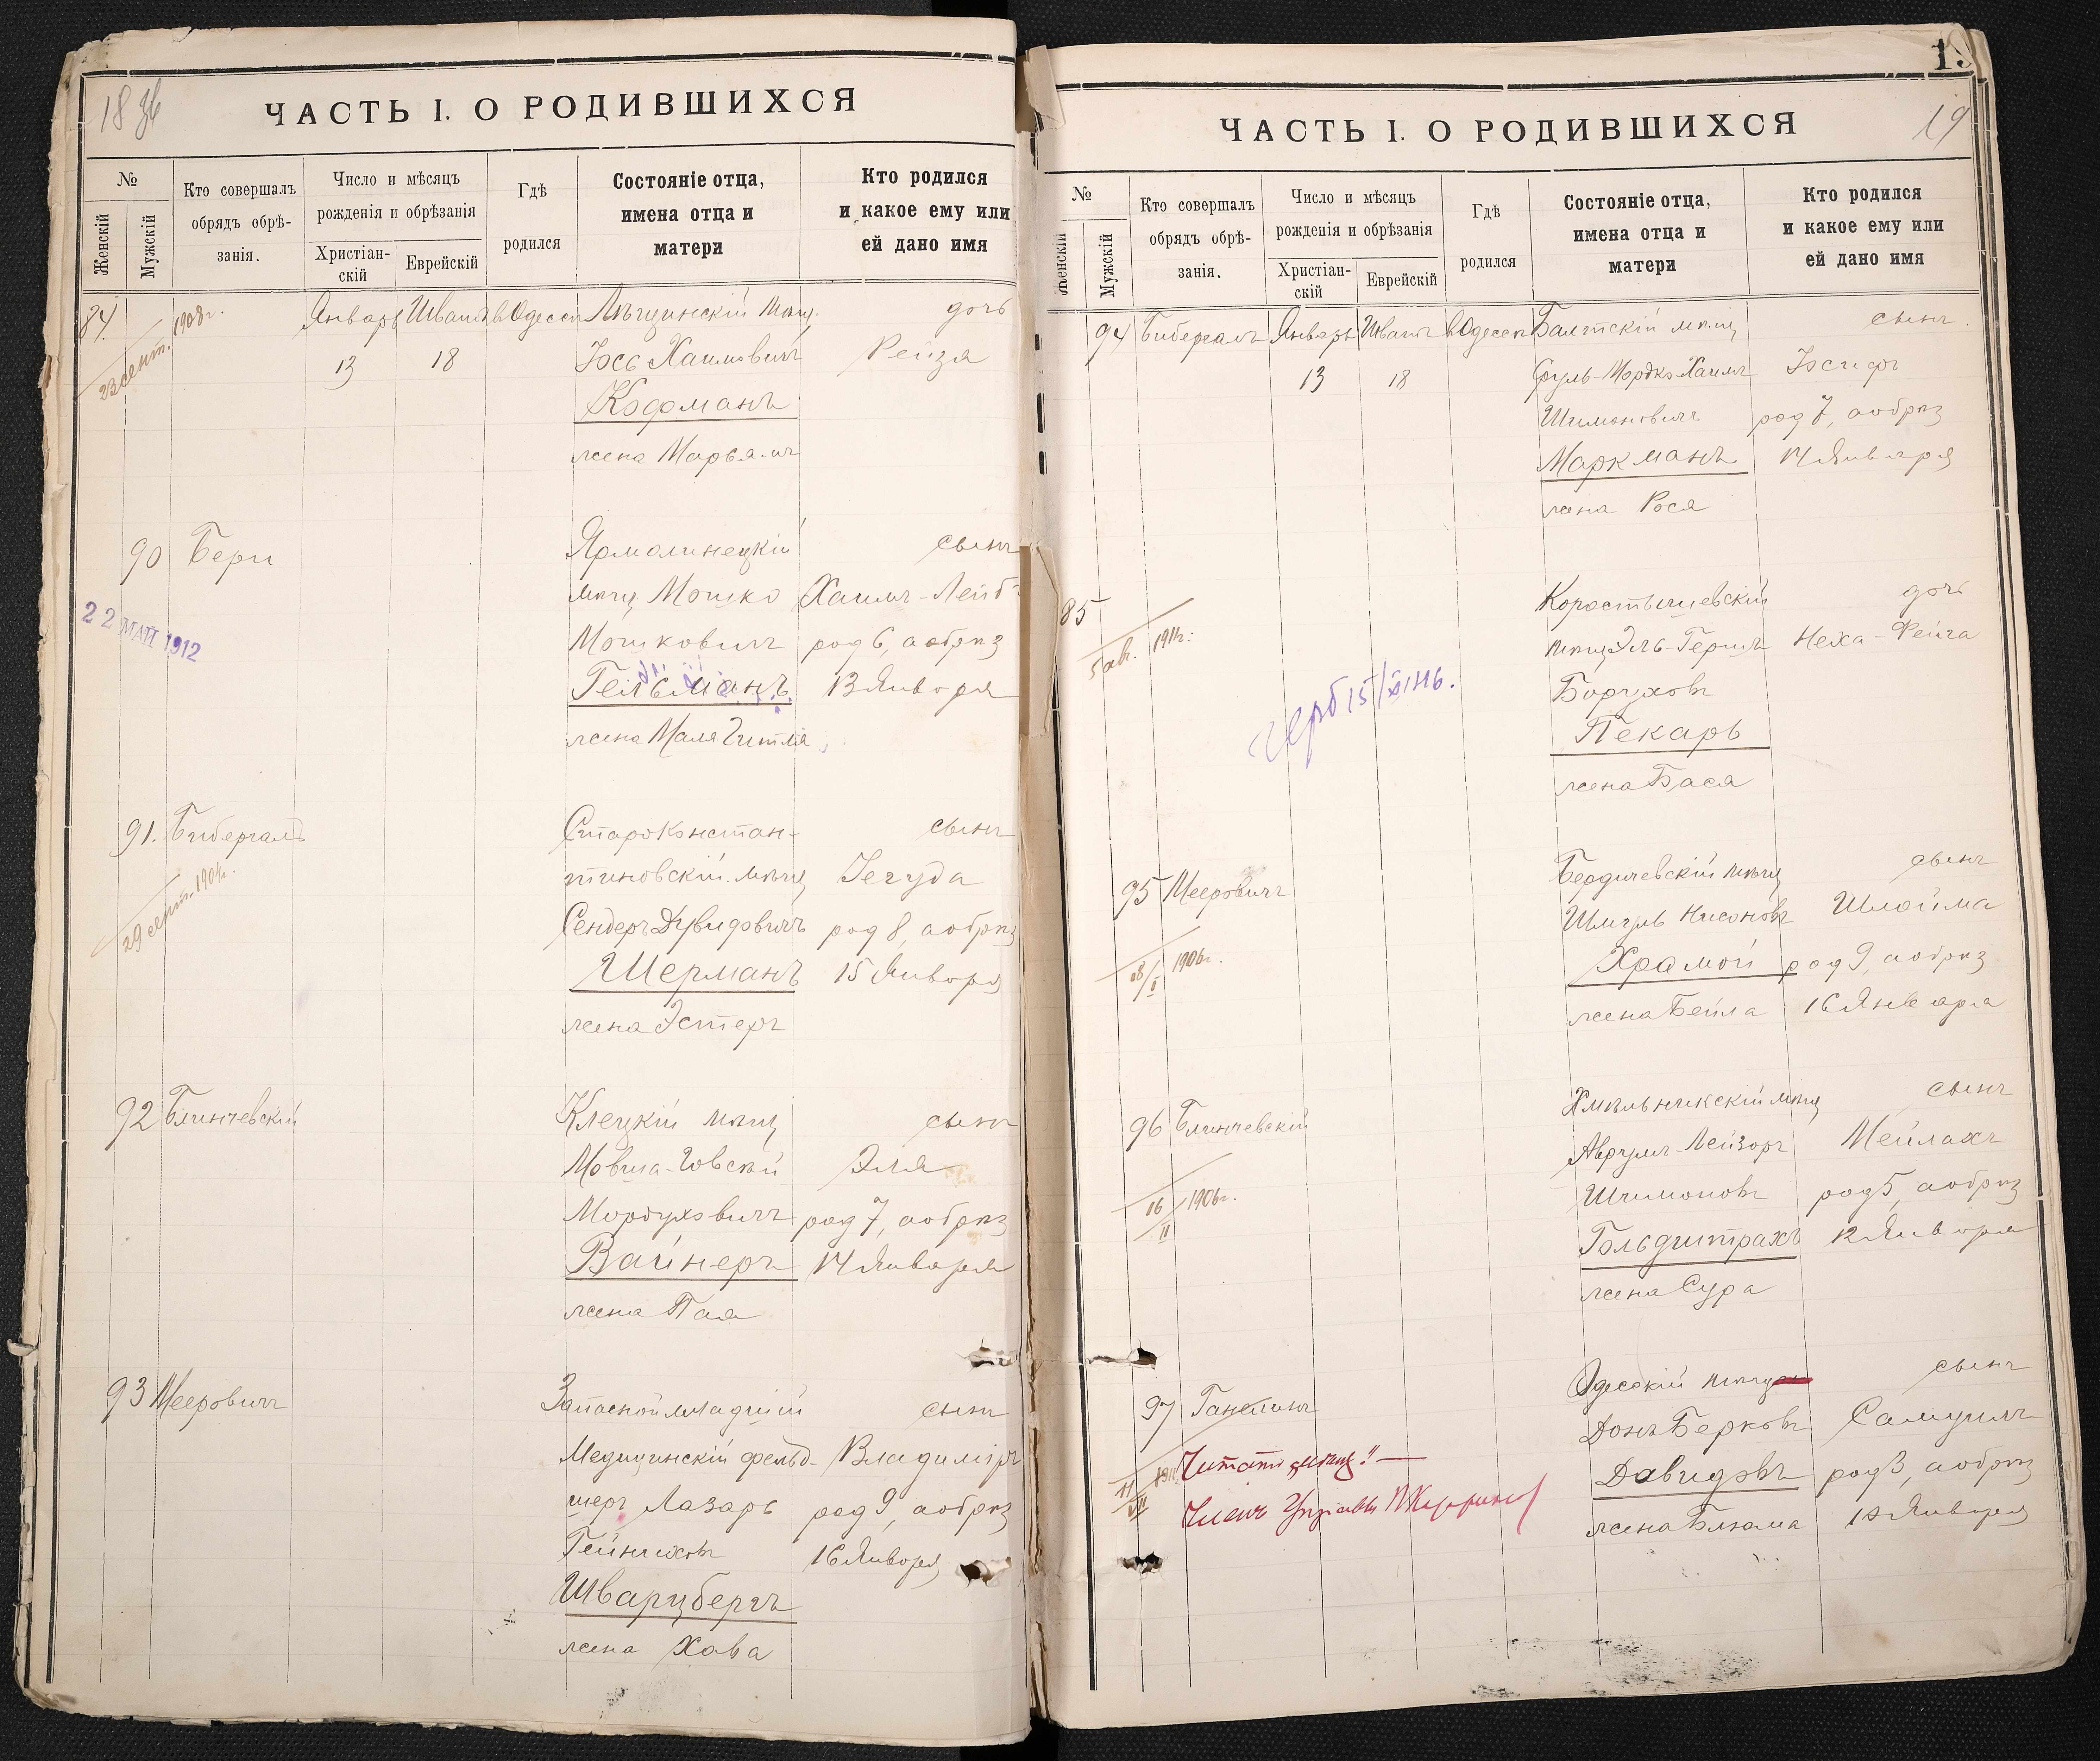 18 об
ЧАСТЬ I. О РОДИВШИХСЯ
№
Женскій
Мужскій
Кто совершалъ
обрядъ обрѣ-
занія.
Число и мѣсяцъ
рожденія и обрѣзанія
Христіан-
скій
Еврейскій
Гдѣ
родился
Состояніе отца,
имена отца и
матери
Кто родился
и какое ему или
ей дано имя
84.
23 сент. 1908 г.
Январь Шватъ в Одессѣ мѣщ. дочь
13 18 Іось Хаимовичъ Рейзя
Кофманъ
жена Марьямъ
90 Бери Ярмолинецкій сынъ
мѣщ Мошко Хаимъ-Лейб
22 МАЙ 1912
Мошковичъ род 6, а обрѣз
Гельманъ 13 Января
жена Маля Гитля
91. Бибергалъ Староконстан- сынъ
тиновскій мѣщ Іегуда
29 сент. 1904 г.
Сендеръ Дувидовичъ род 8, а обрѣз
Шерманъ 15 Января
жена Эстеръ
92 Блинчевскій Клецкій мѣщ сынъ
Мовша- Эля
Мордуховичъ род 7, а обрѣз
Вайнеръ 14 Января
жена Пая
93 Мееровичъ Запасной младшій сынъ
Медицинскій фельд- Владиміръ
шеръ Лазарь род 9, а обрѣз
16 Января
Шварцбергъ
жена Хава
19
19
ЧАСТЬ I. О РОДИВШИХСЯ
№
Женскій
Мужскій
Кто совершалъ
обрядъ обрѣ-
занія.
Число и мѣсяцъ
рожденія и обрѣзанія
Христіан-
скій
Еврейскій
Гдѣ
родился
Состояніе отца,
имена отца и
матери
Кто родился
и какое ему или
ей дано имя
94 Бибергалъ Январь Шватъ в Одессѣ Балтскій мѣщ сынъ
13 18 Сруль-Мордко-Хаимъ Іосифъ
Шимоновичъ род 7, а обрѣз
Маркманъ 14 Января
жена Рося
85 Коростышевскій дочь
5 ав. 1911 г.
мѣщ Эль-Гершъ Неха-Фейга
Боруховъ
Пекарь
жена Бася
95 Мееровичъ Бердичевскій мѣщ сынъ
Шмуль Нисоновъ Шлойма
1906 г.
Храмой род 9, а обрѣз
жена Бейла 16 Января
96 Блинчевскій Хмѣльникскій мѣщ сынъ
Аврумъ-Лейзоръ Мейлахъ
16/II 1906 г.
Шимоновъ род 5, а обрѣз
Гольдштрахъ 12 Января
жена Сура
97 Ганелинъ Одесскій сынъ
Донъ Берковъ Самуилъ
Читать мѣщ!!
Давидовъ род 3, а обрѣз
Членъ Управы
жена Блюма 10 Января